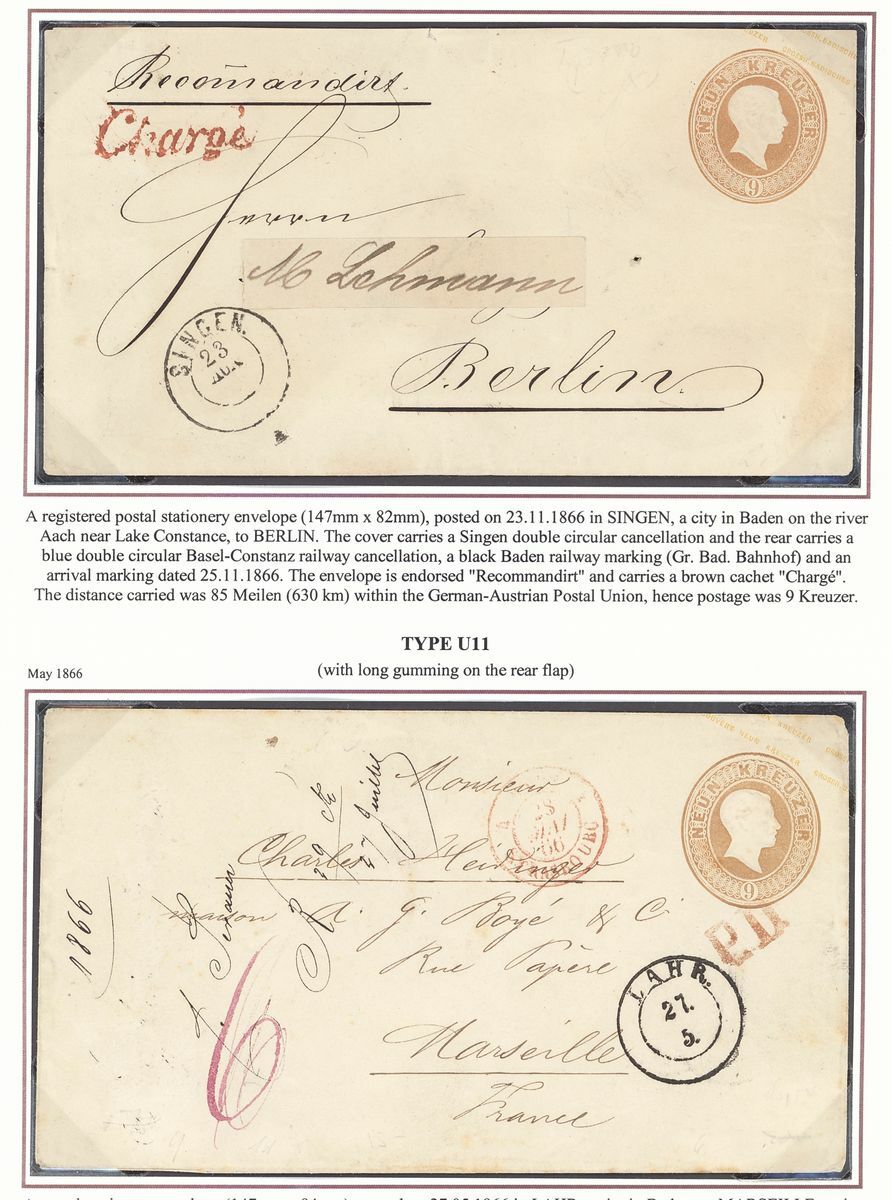 Recom̄andirt.
Chargé
NEUN KREUZER
9
Herrn
M Lehmann
SINGEN.
23
NOV
Berlin
A registered postal stationery envelope (147mm x 82mm), posted on 23.11.1866 in SINGEN, a city in Baden on the river
Aach near Lake Constance, to BERLIN. The cover carries a Singen double circular cancellation and the rear carries a
blue double circular Basel-Constanz railway cancellation, a black Baden railway marking (Gr. Bad. Bahnhof) and an
arrival marking dated 25.11.1866. The envelope is endorsed "Recommandirt" and carries a brown cachet "Chargé".
The distance carried was 85 Meilen (630 km) within the German-Austrian Postal Union, hence postage was 9 Kreuzer.
TYPE U11
(with long gumming on the rear flap)
May 1866
NEUN KREUZER
9
Monsieur
28
MAI
66
Charles
maison A. G. Boyé & C.
Rue Papère
P.D.
LAHR.
27.
5.
Marseille
France
1866
R 29
27 Juillet
6